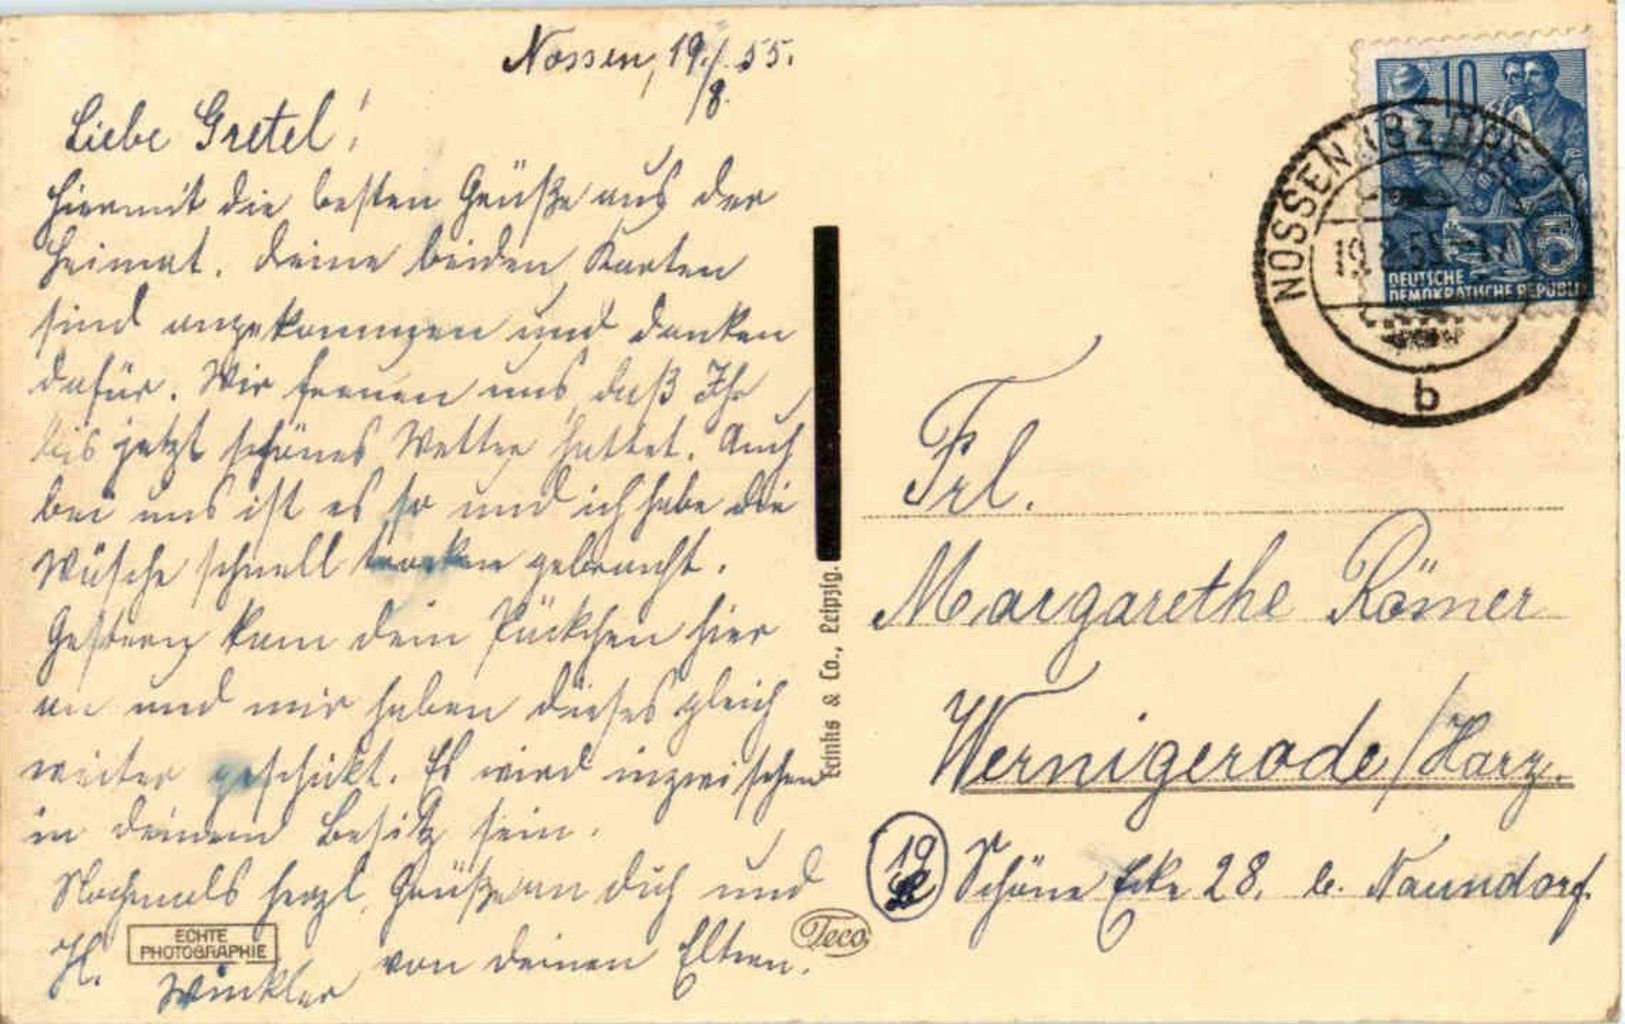 Nossen, 19./8. 55.
Liebe Gretel!
Hiermit die besten Grüße aus der
Heimat. Deine beiden Karten
sind angekommen und danken
dafür. Wir freuen uns, daß Ihr
bis jetzt schönes Wetter hattet. Auch
bei uns ist es so und ich habe die
Wäsche schnell trocken gebracht.
Gestern kam dein Päckchen hier
an und wir haben dieses gleich
weiter geschickt. Es wird inzwischen
in deinem Besitz sein.
Nochmals herzl. Grüße an dich und
H. Winkler von deinen Eltern.
ECHTE
PHOTOGRAPHIE
Teco
& Co., Leipzig.
10
DEUTSCHE
DEMOKRATISCHE REPUBLIK
5
NOSSEN (Bz
19.8.55
b
Frl.
Margarethe Römer
Wernigerode/Harz.
19
Schöne Ecke 28. b. Naundorf.